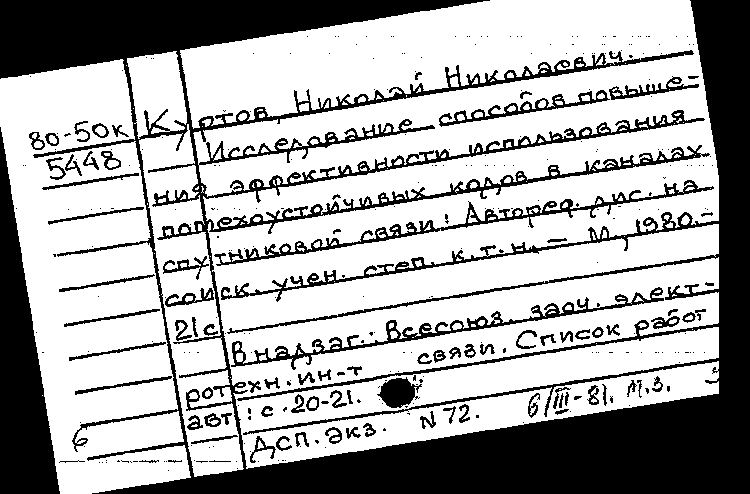 80-50к
5448
Куртов, Николай Николаевич.
Исследование способов повыше-
ния эффективности использования
потехоустойчивых кодов в каналах
спутниковой связи: Автореф. дис. на
соиск. учен. степ. к.т.н. – М., 1980.-
21с.
В надзаг.: Всесоюз. заоч. элект-
ротехн. ин-т связи. Список работ
авт.: с.20-21.
Дсп. экз. N72. 6/III-81. М.З.
6